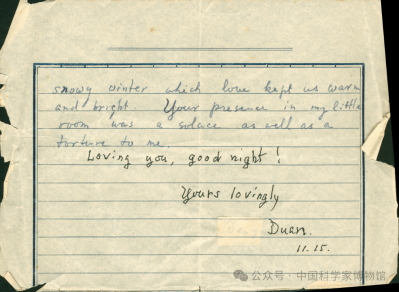 snowy winter which love kept us warm
and bright. Your presence in my little
room was a solace as well as a
torture to me.
Loving you, good night!
Yours lovingly
Duan.
11.15.
公众号·中国科学家博物馆